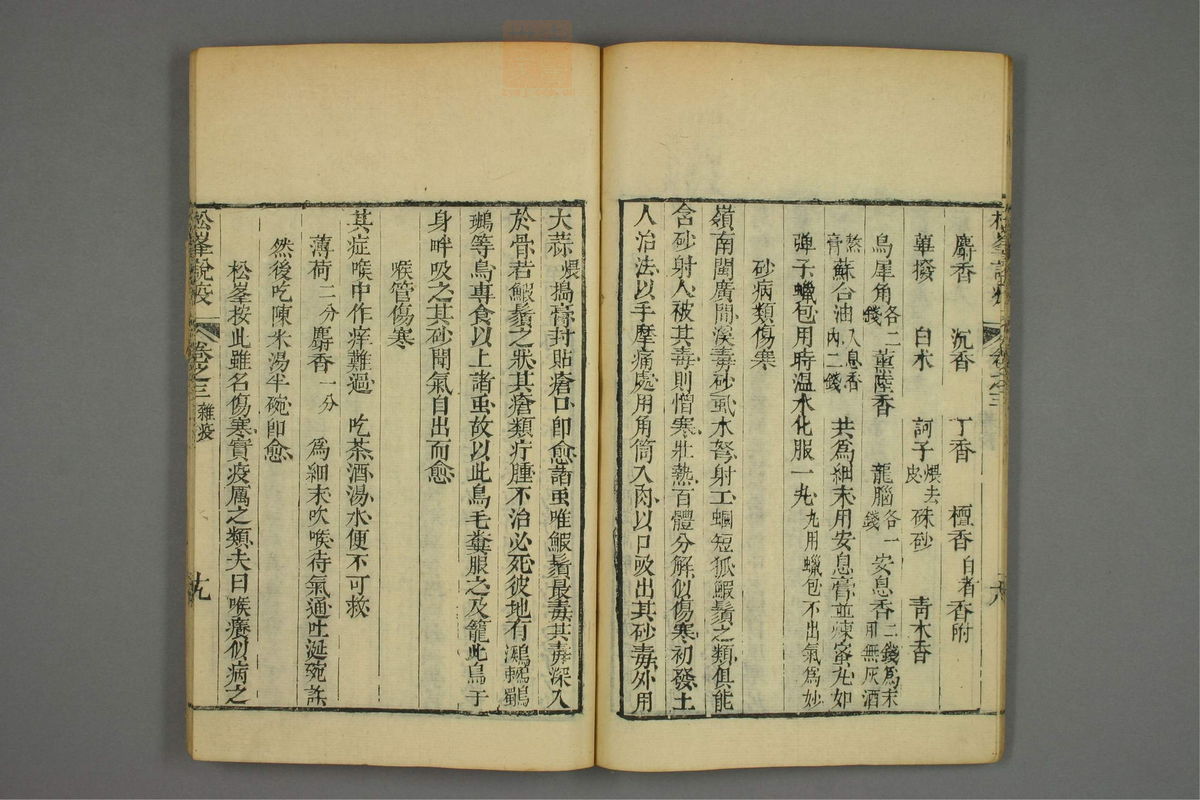 麝香 沉香 丁香 檀香白者 香附
蓽撥 白朮 訶子煨去皮 硃砂 青木香
烏犀角各二錢 薰陸香 龍腦各一錢 安息香二錢爲末用無灰酒
熬膏 蘇合油入息香內二錢 共爲細末用安息膏並煉蜜丸如
彈子蠟包用時温水化服一丸九用蠟包不出氣爲妙
砂病類傷寒
嶺南閩廣間溪毒砂虱水弩射工蟈短狐鰕鬚之類俱能
含砂射人被其毒則憎寒壯熱百體分解似傷寒初發土
人治法以手摩痛處用角筒入肉以口吸出其砂毒外用
大蒜煨搗膏封貼瘡口即愈諸虫唯鰕鬚最毒其毒深入
於骨若鰕鬚之狀其瘡類疔腫不治必死彼地有鸂鶒鸀
鳿等鳥專食以上諸虫故以此鳥毛糞服之及籠此鳥于
身畔吸之其砂聞氣自出而愈
喉管傷寒
其症喉中作痒難過 吃茶酒湯水便不可救
薄荷二分 麝香一分 爲細末吹喉待氣通吐涎碗許
然後吃陳米湯半碗即愈
松峯按此雖名傷寒實疫厲之類夫曰喉癢似病之
松峯說疫 卷之三 雜疫 九